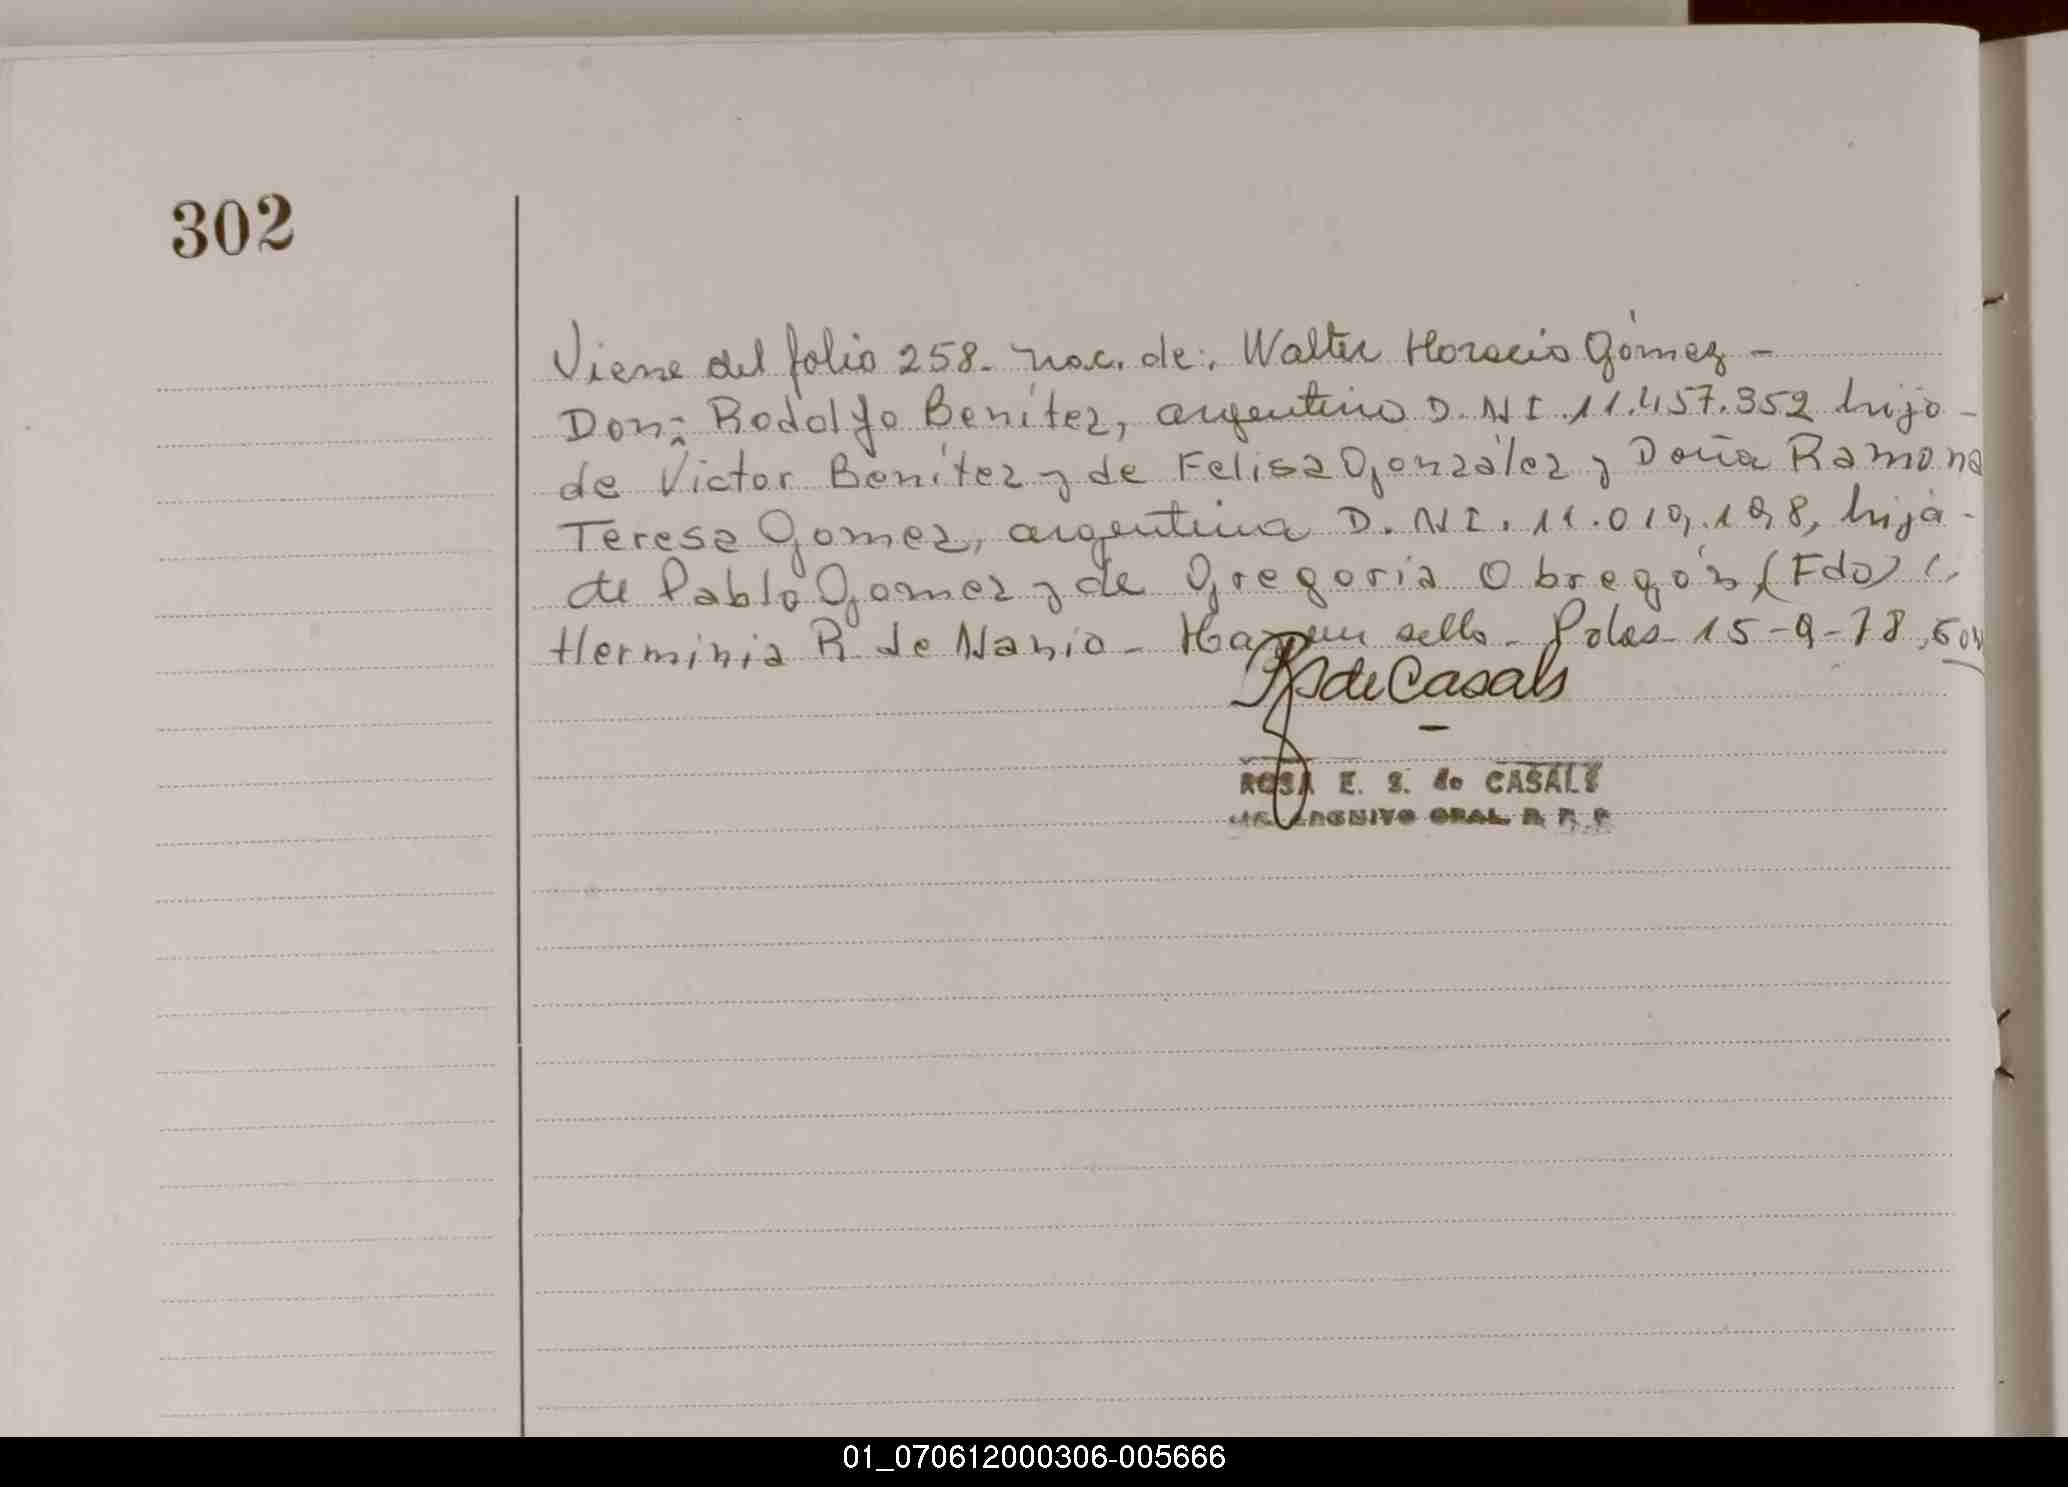 302
Viene del folio 258. nac. de: Walter Horacio Gómez -
Don: Rodolfo Benítez, argentino D.NI.11.457.352 hijo -
de Victor Benítez y de Felisa González y Doña Ramona
Teresa Gomez, argentina D.NI.11.019.198, hija -
de Pablo Gomez y de Gregoria Obregón, (Fdo)
Herminia R de Nanio - Hay un sello - Pdas - 15-9-78
de Casals
ROSA E. S. de CASALS
ARCHIVO GRAL. R. P. P
01_070612000306-005666